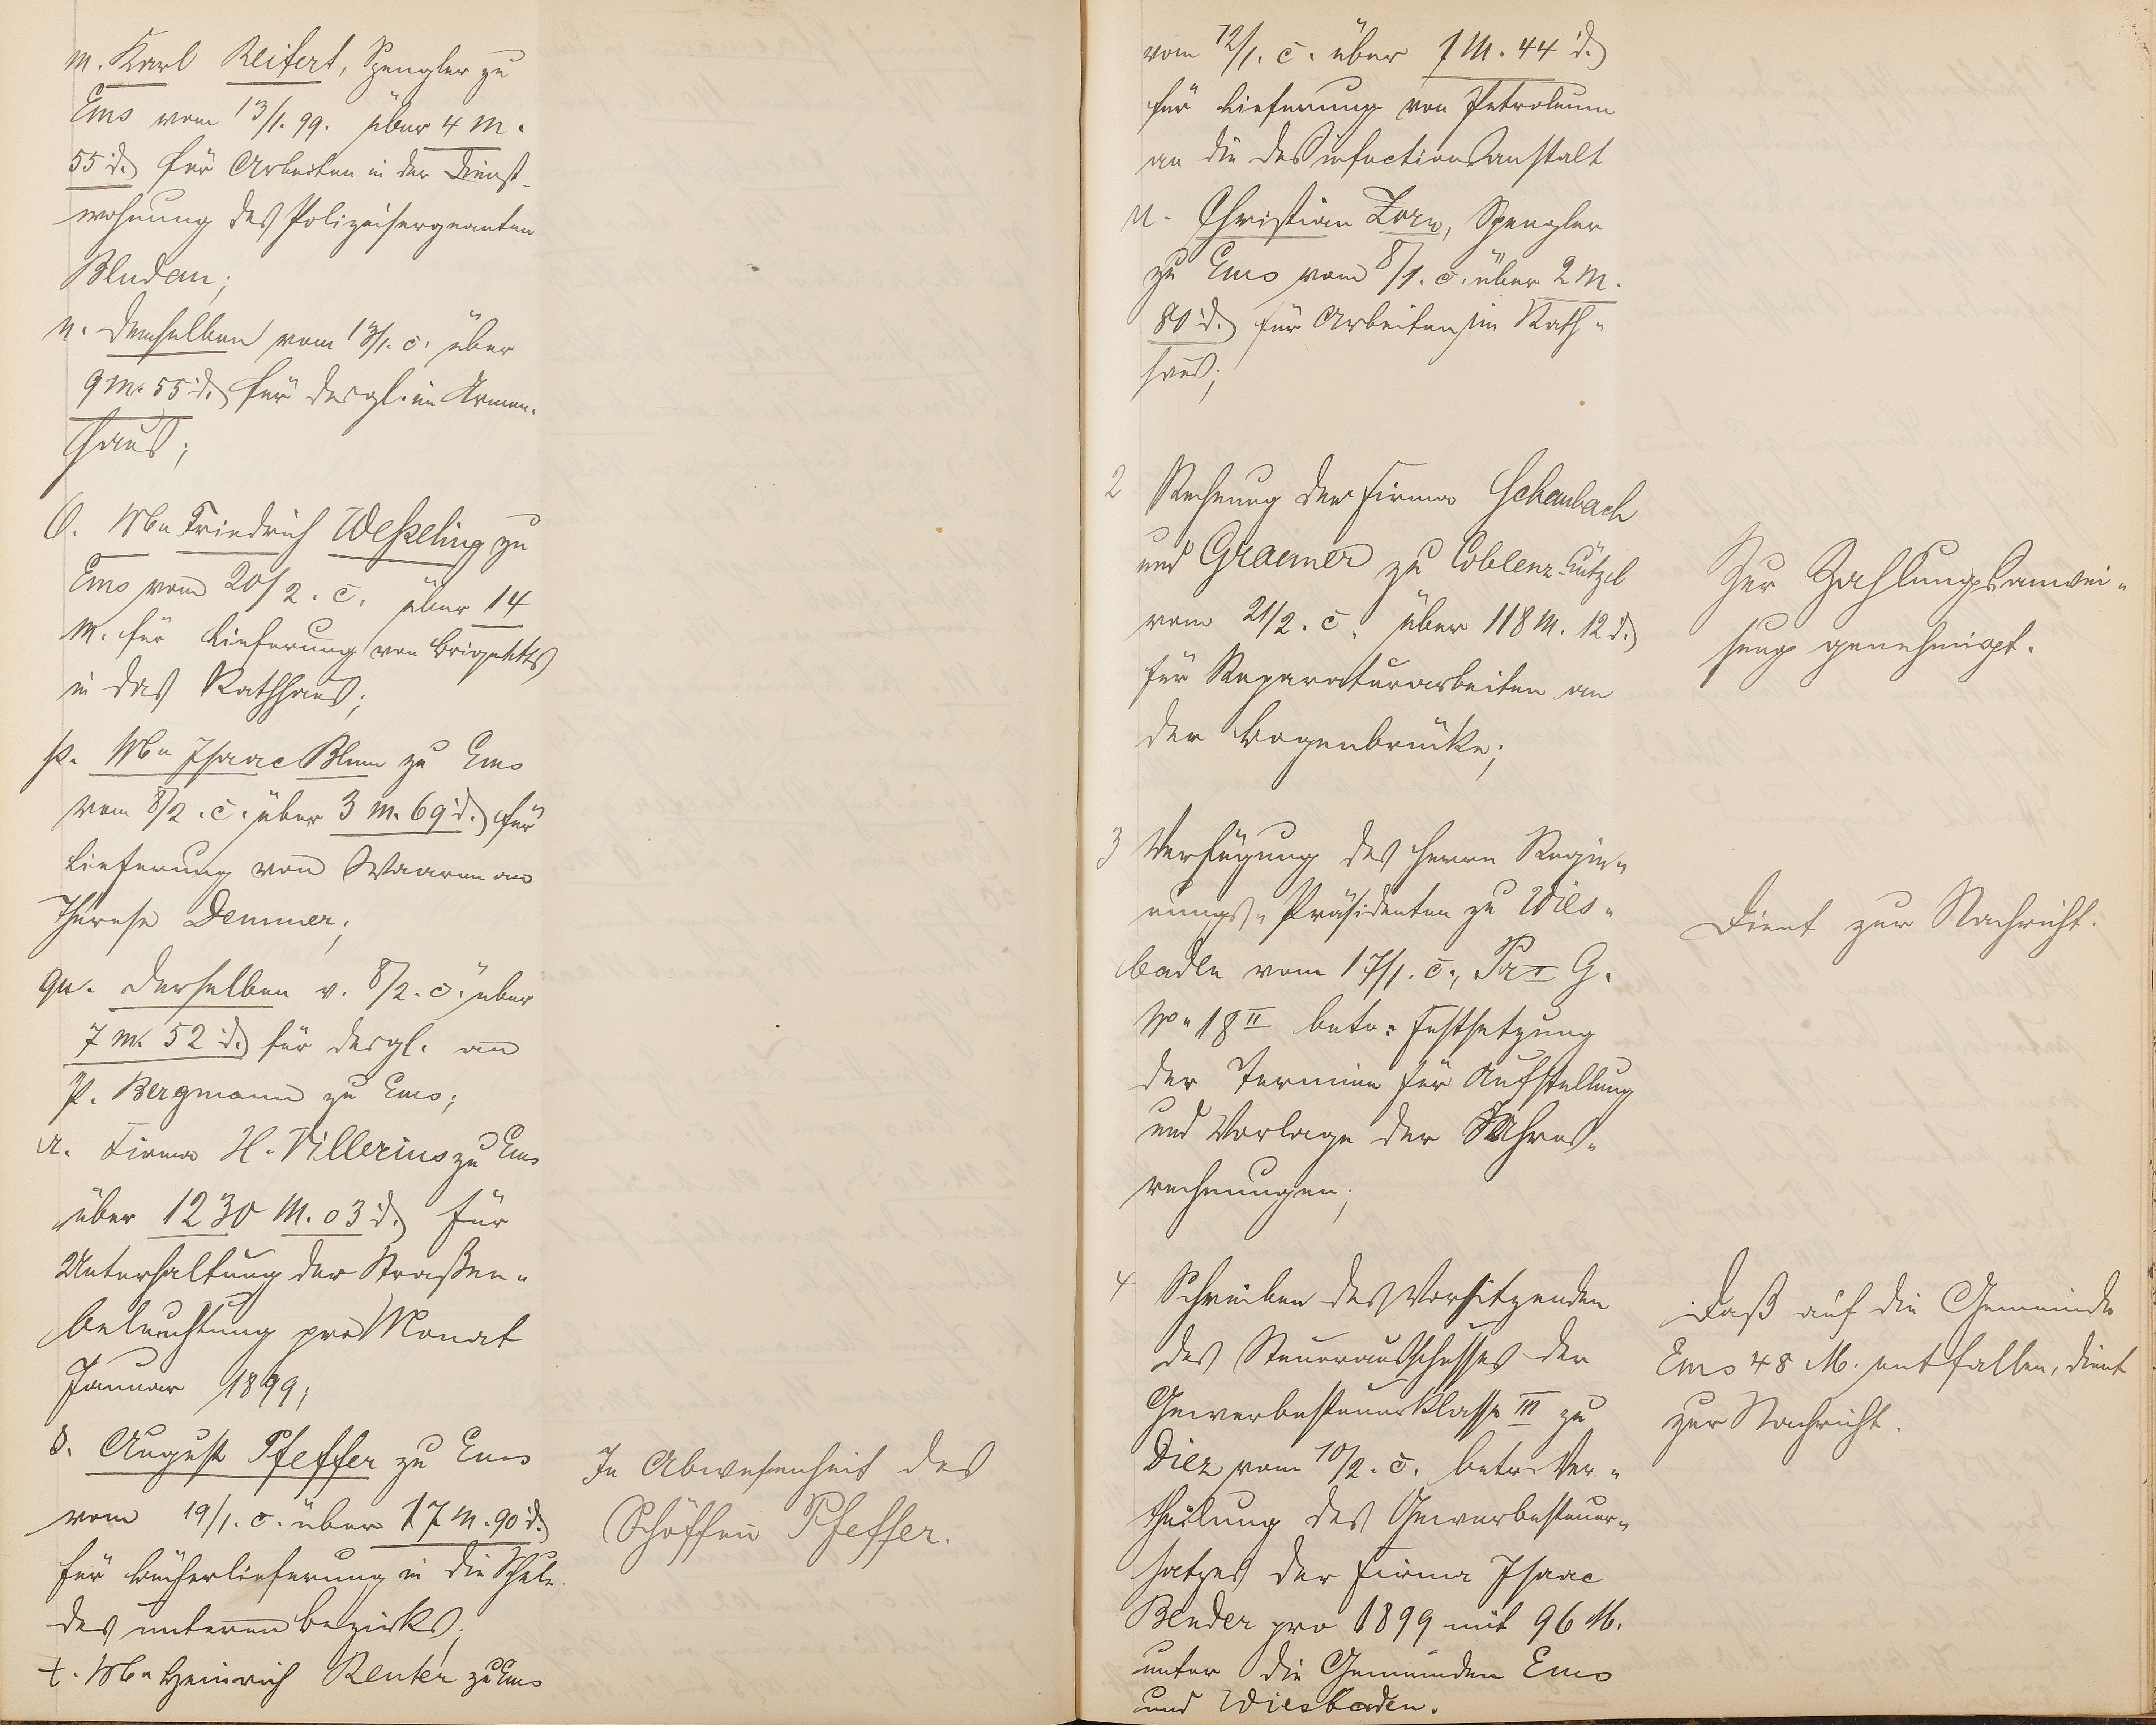 m. Karl Reifert, Spengler zu
Ems vom 13/1. 99. über 4 M.
55 d. für Arbeiten in der Dienst-
wohnung des Polizeisergeanten
Bludau;
n. Demselben vom 13/1. c. über
9 M. 55 d. für desgl. im Armen-
haus;
o. Wwe Friedrich Weßeling zu
Ems vom 20/2. c. über 14
M. für Lieferung von Briquetts
in das Rathhaus;
p. Wwe Isaac Blum zu Ems
vom 8/2. c. über 3 M. 69 d. für
Lieferung von Waaren an
Therese Demmer;
qu. Derselben v. 8/2. c. über
7 M. 52 d. für desgl. an
P. Bergmann zu Ems;
r. Firma H. Villerius zu Ems
über 1230 M. 03 d. für
Unterhaltung der Straßen-
beleuchtung pro Monat
Januar 1899;
s. August Pfeffer zu Ems
vom 19/1. c. über 17 M. 90 d.
für Bücherlieferung in die Schule
des unteren Bezirks;
t. Wwe Heinrich Reuter zu Ems
In Abwesenheit des
Schöffen Pfeffer.
vom 12/1. c. über 1 M. 44 d.
für Lieferung von Petroleum
an die Desinfectionsanstalt
u. Christian Zorn, Spengler
zu Ems vom 8/1. c. über 2 M.
80 d. für Arbeiten im Rath-
haus;
2 Rechnung der Firma Schaubach
und Graemer zu Coblenz-Lützel
vom 21/2. c. über 118 M. 12 d.
für Reparaturarbeiten an
der Bogenbrücke;
Zur Zahlungsanwei-
sung genehmigt.
3 Verfügung des Herrn Regie-
rungs-Präsidenten zu Wies-
baden vom 17/1. c., Pr I G.
No 18 II betr. Festsetzung
der Termine für Aufstellung
und Vorlage der Jahres-
rechnungen;
Dient zur Nachricht.
4 Schreiben des Vorsitzenden
des Steuerausschusses der
Gewerbesteuerklasse III zu
Diez vom 10/2. c. betr. Ver-
theilung des Gewerbesteuer-
satzes der Firma Isaac
Bender pro 1899 mit 96 M.
unter die Gemeinden Ems
und Wiesbaden.
Daß auf die Gemeinde
Ems 48 M. entfallen, dient
zur Nachricht.